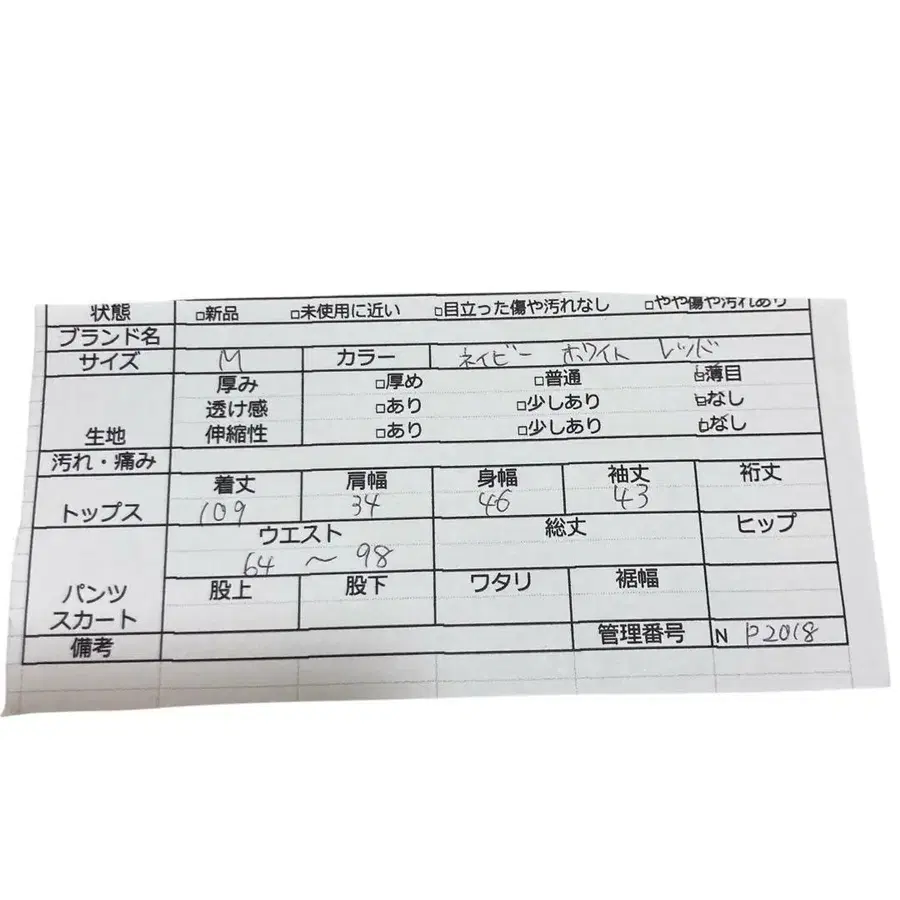 状態 □新品 □未使用に近い □目立った傷や汚れなし □やや傷や汚れあり
ブランド名
サイズ M カラー ネイビー ホワイト レッド
生地 厚み □厚め □普通 ☑薄目
透け感 □あり □少しあり ☑なし
伸縮性 □あり □少しあり ☑なし
汚れ・痛み
トップス 着丈 肩幅 身幅 袖丈 裄丈
109 34 46 43
パンツ スカート ウエスト 総丈 ヒップ
64 〜 98
股上 股下 ワタリ 裾幅
備考 管理番号 N P2018